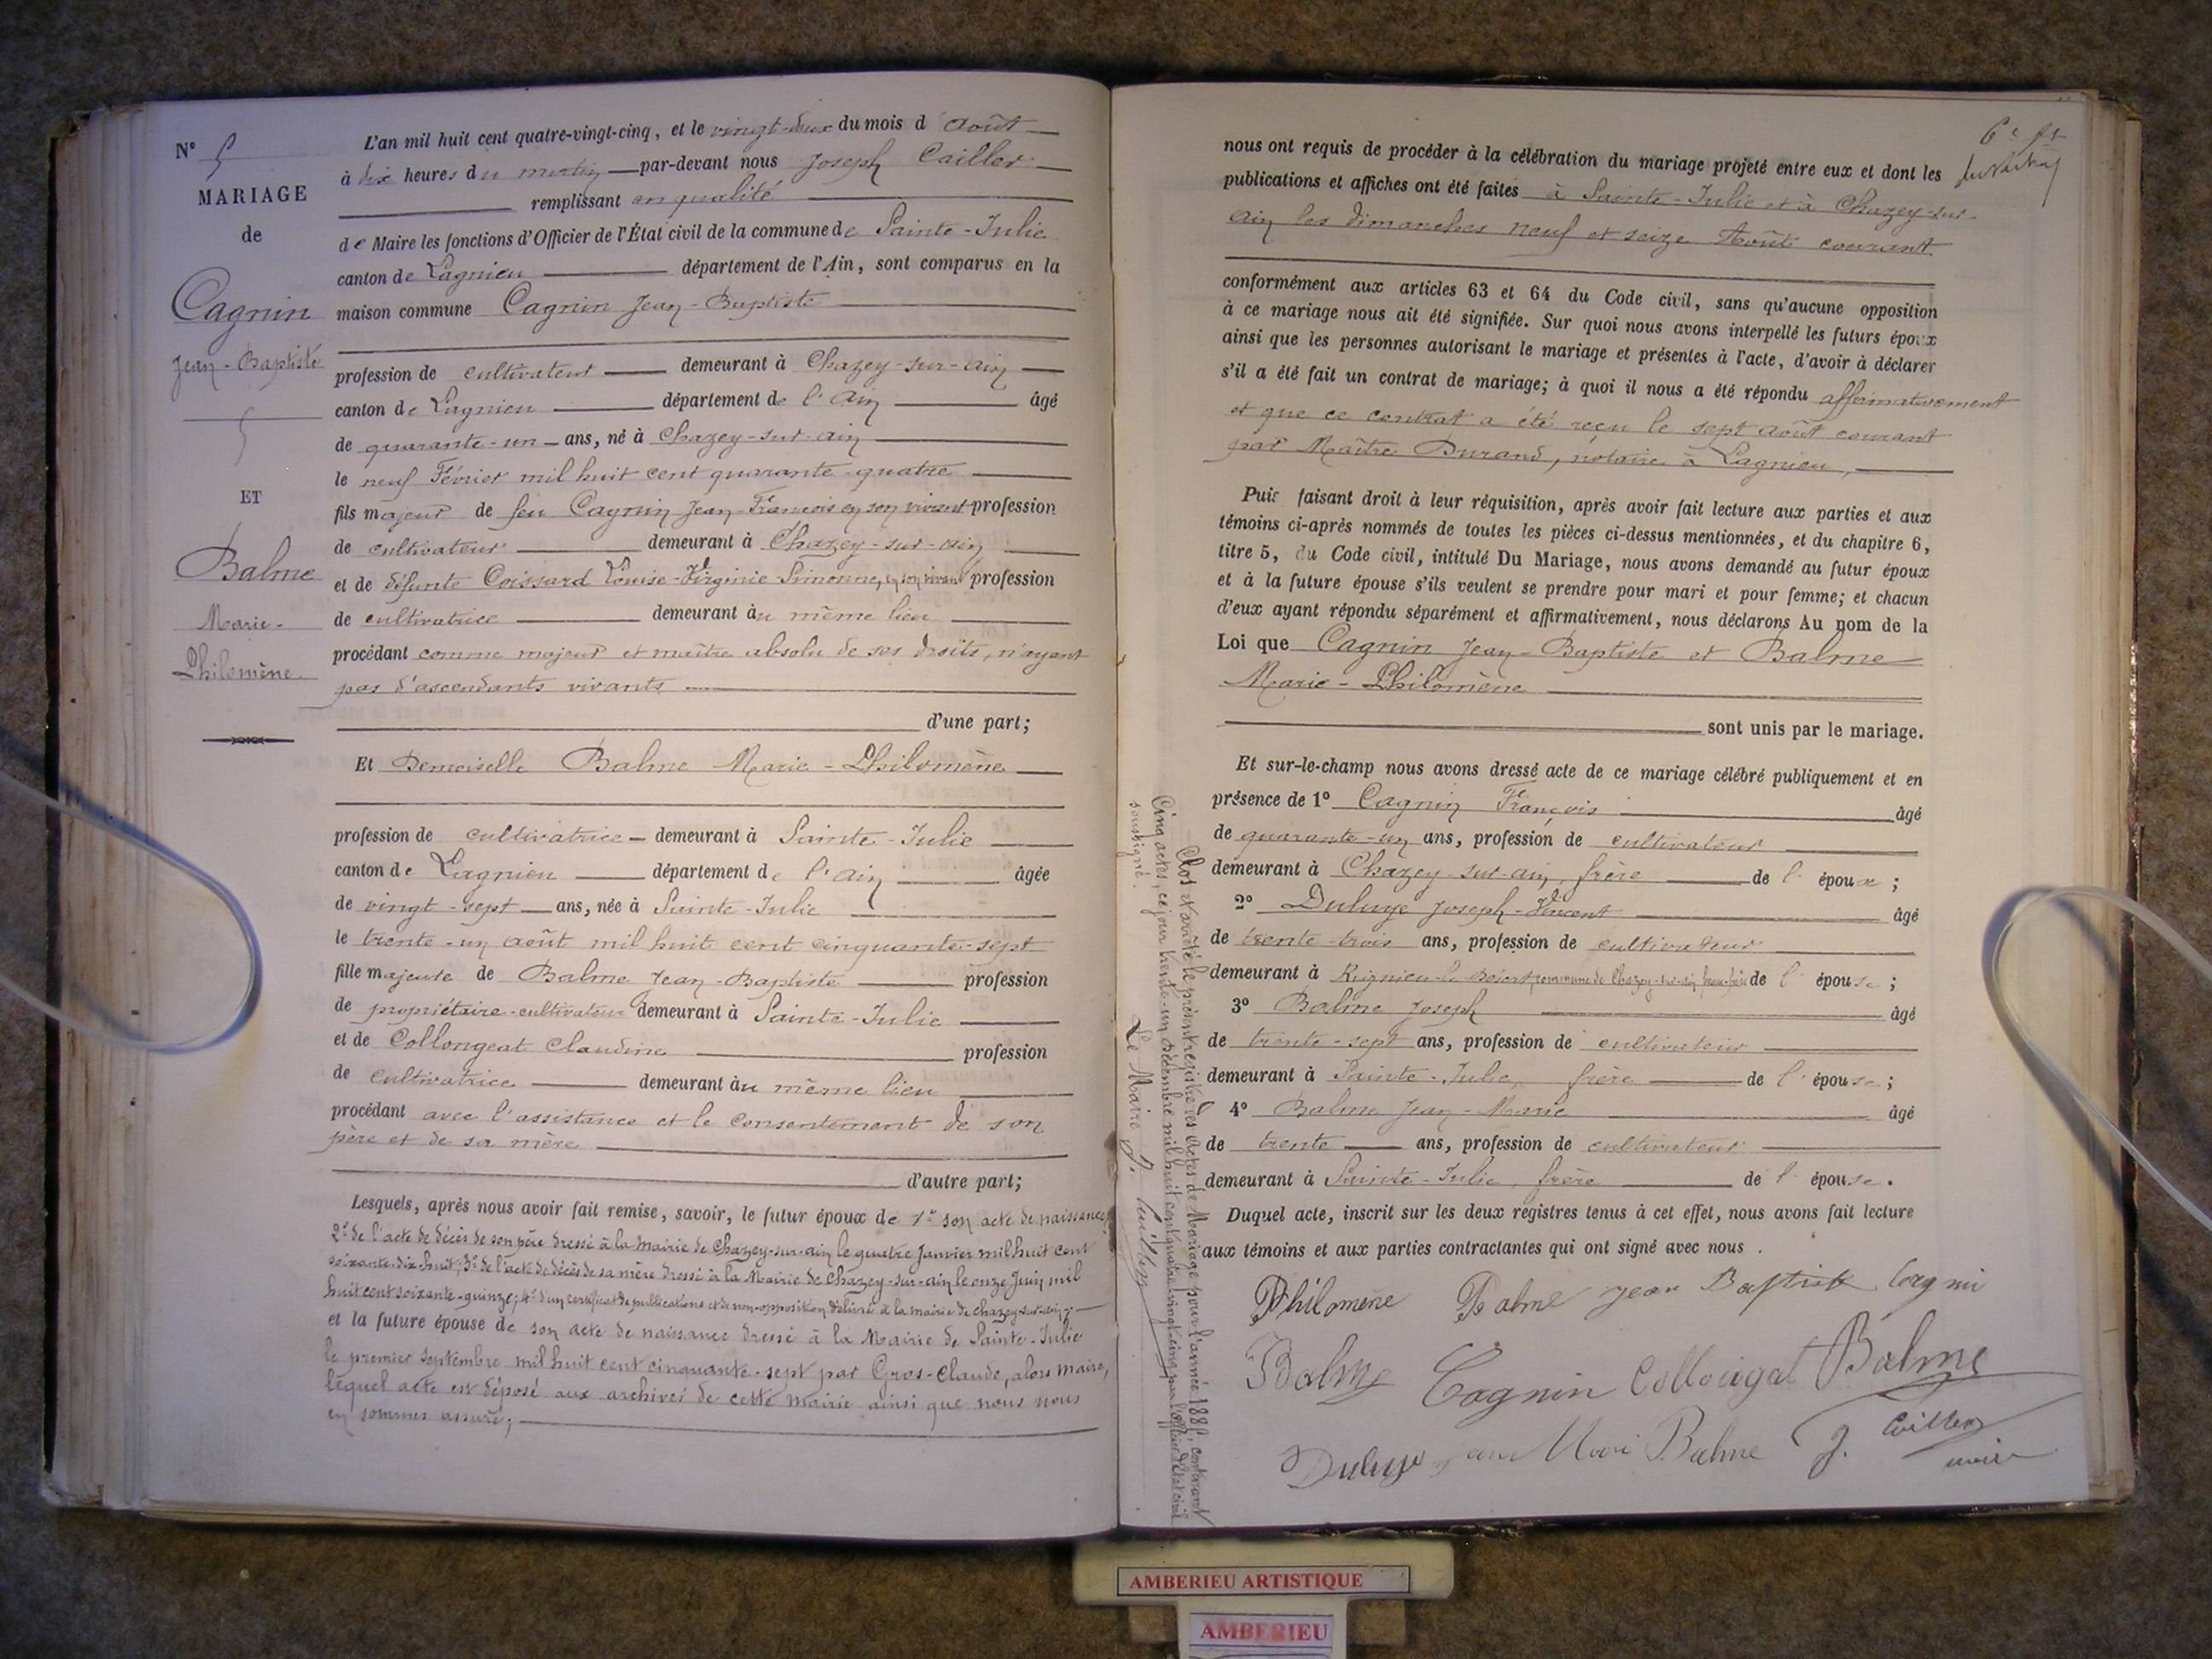 N° 5
MARIAGE
de
Cagnin
Jean-Baptiste
ET
Balme
Marie-
Philomène
L'an mil huit cent quatre-vingt-cinq, et le vingt-deux du mois d'Août
à dix heures du matin par-devant nous Joseph Cailler
remplissant en qualité
de Maire les fonctions d'Officier de l'État civil de la commune de Sainte-Julie
canton de Lagnieu département de l'Ain, sont comparus en la
maison commune Cagnin Jean-Baptiste
profession de cultivateur demeurant à Chazey-sur-Ain
canton de Lagnieu département de l'Ain âgé
de quarante-un ans, né à Chazey-sur-Ain
le neuf Février mil huit cent quarante-quatre
fils majeur de feu Cagnin Jean-François en son vivant profession
de cultivateur demeurant à Chazey-sur-Ain
et de défunte Coissard Louise-Virginie Simonne, en son vivant profession
de cultivatrice demeurant au même lieu
procédant comme majeur et maître absolu de ses droits, n'ayant
pas d'ascendants vivants
d'une part;
Et Demoiselle Balme Marie-Philomène
profession de cultivatrice demeurant à Sainte-Julie
canton de Lagnieu département de l'Ain âgée
de vingt-sept ans, née à Sainte-Julie
le trente-un août mil huit cent cinquante-sept
fille majeure de Balme Jean-Baptiste profession
de propriétaire-cultivateur demeurant à Sainte-Julie
et de Collongeat Claudine profession
de cultivatrice demeurant au même lieu
procédant avec l'assistance et le consentement de son
père et de sa mère
d'autre part;
Lesquels, après nous avoir fait remise, savoir, le futur époux de 1° son acte de naissance,
2° de l'acte de décès de son père dressé à la Mairie de Chazey-sur-Ain le quatre Janvier mil huit cent
soixante-dix-huit; 3° de l'acte de décès de sa mère dressé à la Mairie de Chazey-sur-Ain le onze Juin mil
huit cent soixante-quinze; 4° d'un certificat de publications et de non-opposition délivré à la mairie de Chazey-sur-Ain;
et la future épouse de son acte de naissance dressé à la Mairie de Sainte-Julie
le premier septembre mil huit cent cinquante-sept par Gros-Claude, alors maire,
lequel acte est déposé aux archives de cette mairie ainsi que nous nous
en sommes assuré;
6e
nous ont requis de procéder à la célébration du mariage projeté entre eux et dont les
publications et affiches ont été faites à Sainte-Julie et à Chazey-sur-
Ain les dimanches neuf et seize Août courant
conformément aux articles 63 et 64 du Code civil, sans qu'aucune opposition
à ce mariage nous ait été signifiée. Sur quoi nous avons interpellé les futurs époux
ainsi que les personnes autorisant le mariage et présentes à l'acte, d'avoir à déclarer
s'il a été fait un contrat de mariage; à quoi il nous a été répondu affirmativement
et que ce contrat a été reçu le sept août courant
par Maître Durand, notaire à Lagnieu,
Puis faisant droit à leur réquisition, après avoir fait lecture aux parties et aux
témoins ci-après nommés de toutes les pièces ci-dessus mentionnées, et du chapitre 6,
titre 5, du Code civil, intitulé Du Mariage, nous avons demandé au futur époux
et à la future épouse s'ils veulent se prendre pour mari et pour femme; et chacun
d'eux ayant répondu séparément et affirmativement, nous déclarons Au nom de la
Loi que Cagnin Jean-Baptiste et Balme
Marie-Philomène
sont unis par le mariage.
Et sur-le-champ nous avons dressé acte de ce mariage célébré publiquement et en
présence de 1° Cagnin François âgé
de quarante-un ans, profession de cultivateur
demeurant à Chazey-sur-Ain, frère de l'époux;
2° Duluye Joseph-Vincent âgé
de trente-trois ans, profession de cultivateur
demeurant à Rignieu-le-Désert, commune de Chazey-sur-Ain, beau-frère de l'épouse;
3° Balme Joseph âgé
de trente-sept ans, profession de cultivateur
demeurant à Sainte-Julie, frère de l'épouse;
4° Balme Jean-Marie âgé
de trente ans, profession de cultivateur
demeurant à Sainte-Julie, frère de l'épouse.
Duquel acte, inscrit sur les deux registres tenus à cet effet, nous avons fait lecture
aux témoins et aux parties contractantes qui ont signé avec nous.
Philomène Balme Jean Baptiste Cagnin
Balme Cagnin Collongat Balme
Duluye Jean Marie Balme J. Cailler
maire
Clos et arrêté le présent registre des actes de Mariage pour l'année 1885, contenant
Cinq actes, ce jour trente-un décembre mil huit cent quatre vingt-cinq par l'officier d'état civil
soussigné. Le Maire J. Cailler
AMBERIEU ARTISTIQUE
AMBERIEU